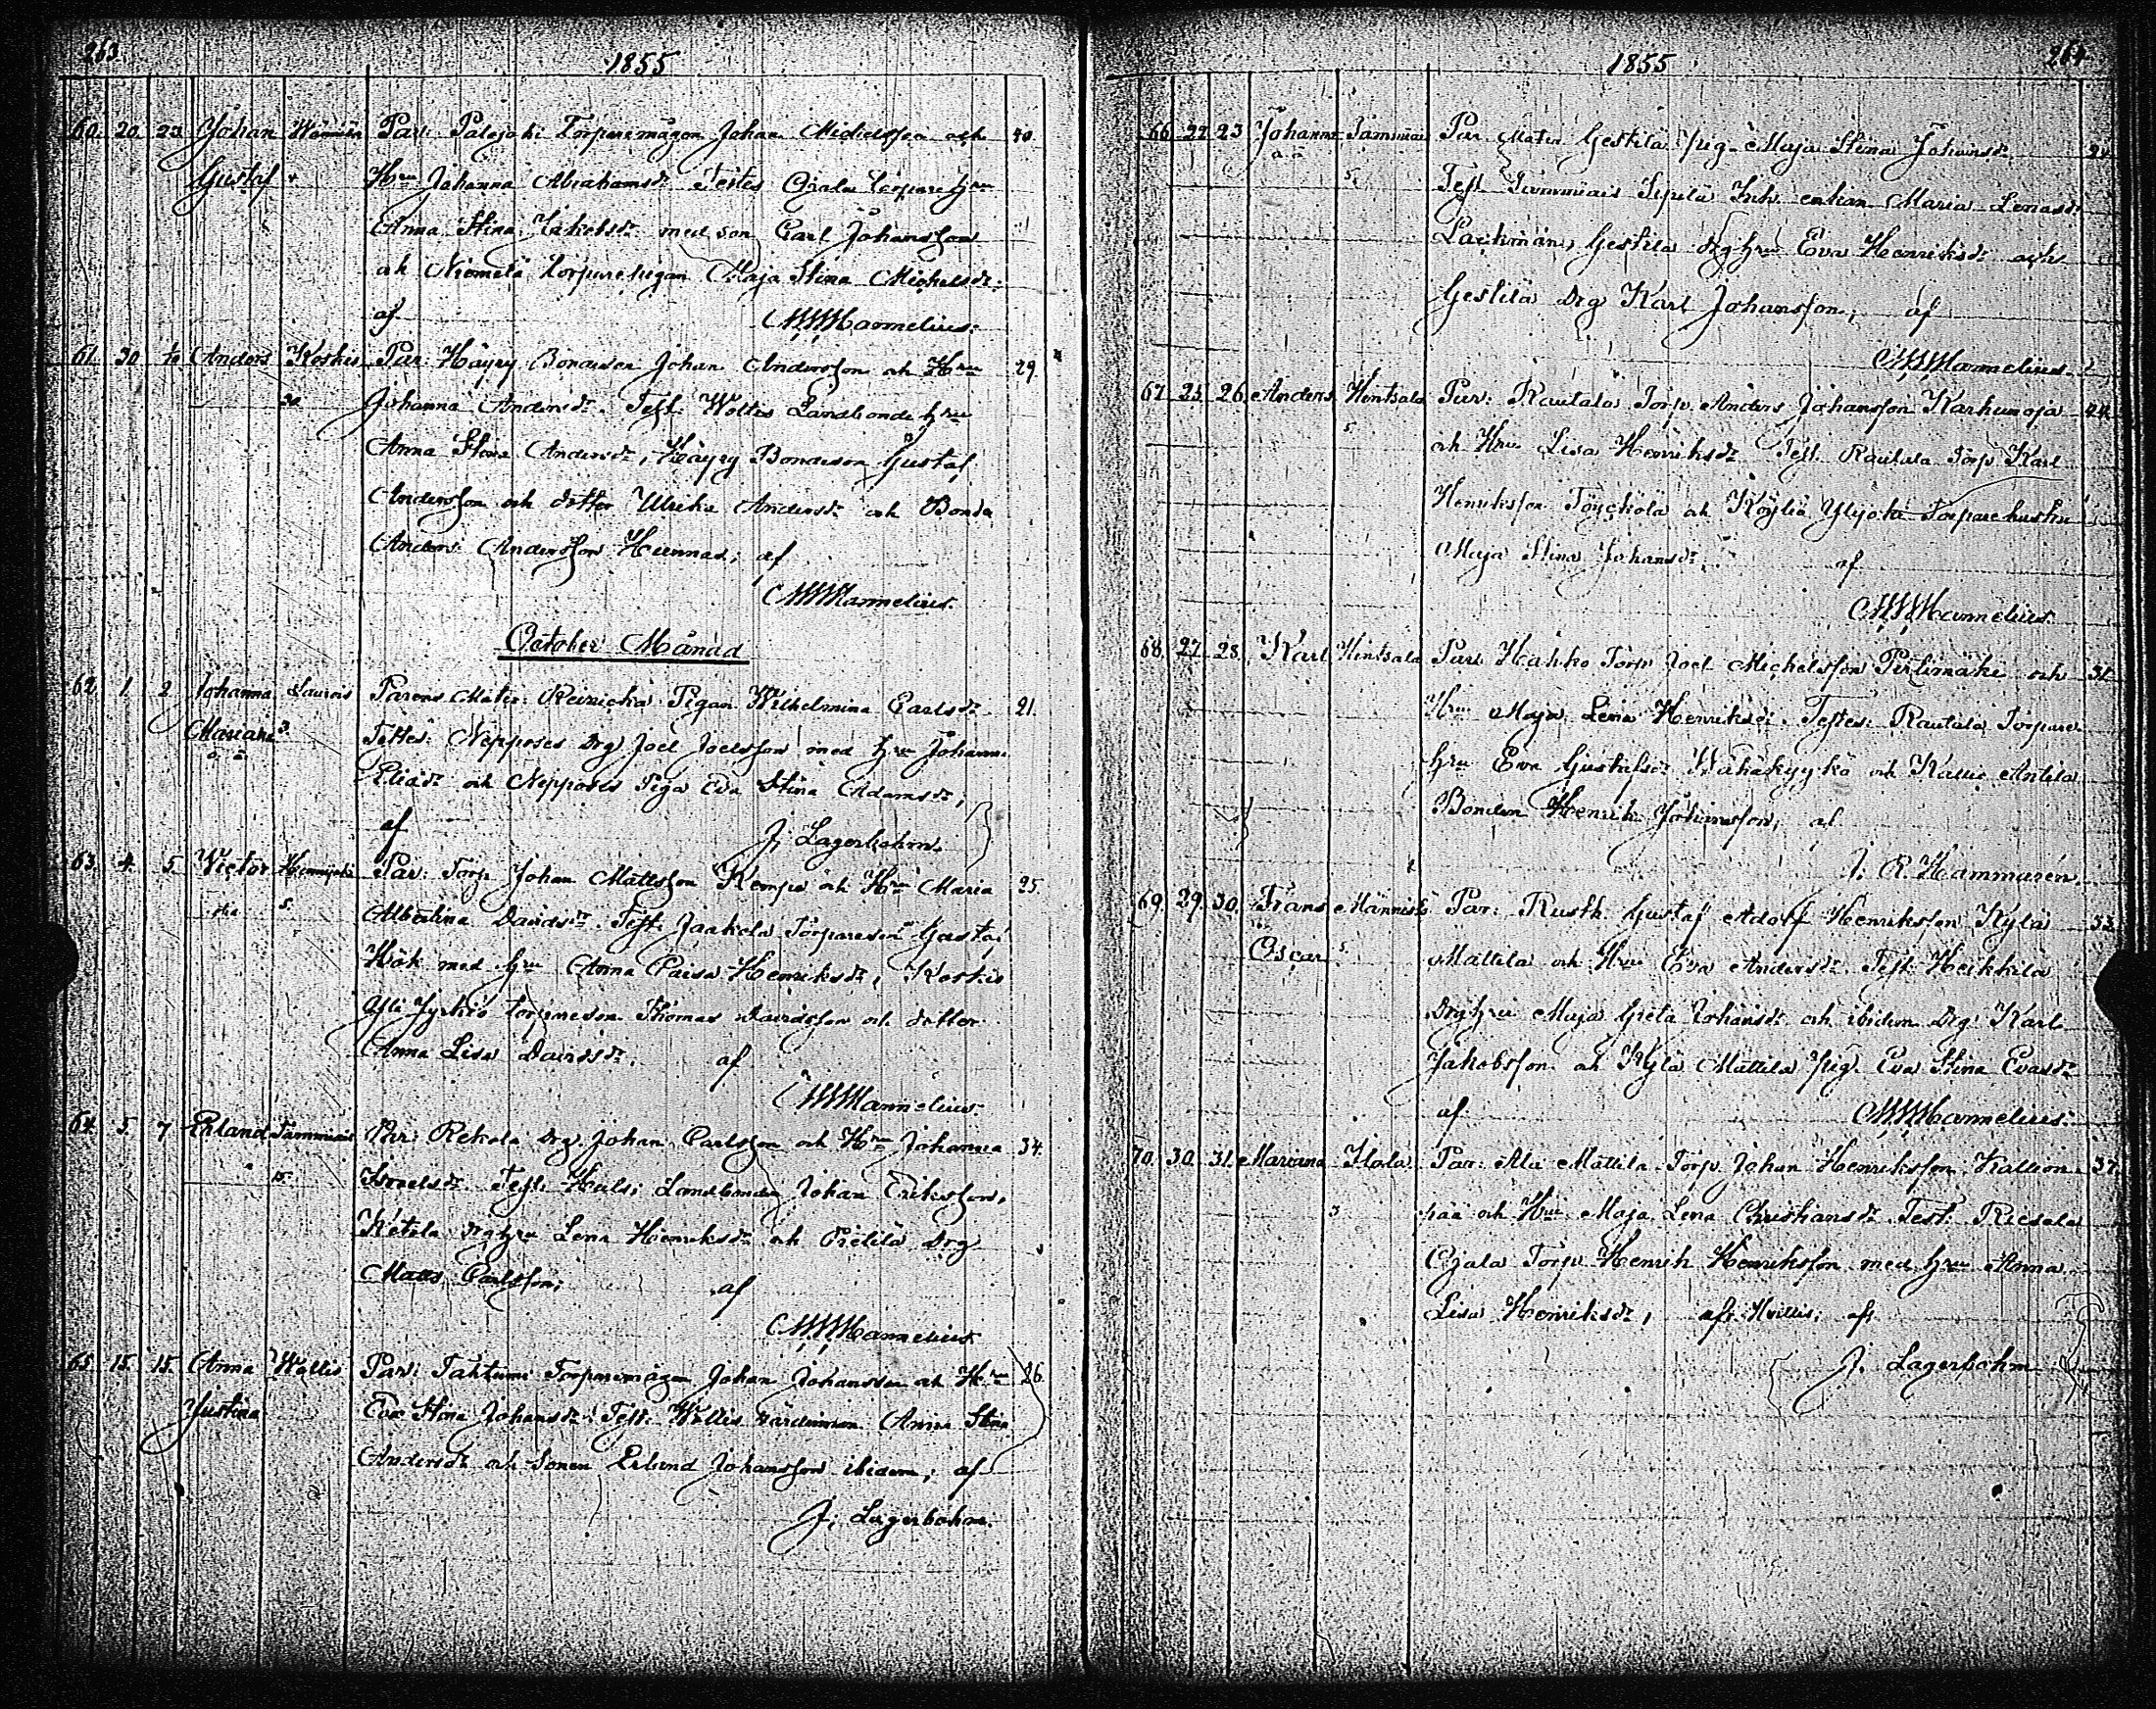 263.
1855
60. 20. 23. Johan Par: Palojoki Torparemågen Johan Michelsson och 40.
Gustaf Hru Johanna Abrahamsdr Testes Ojala torpare hru
Anna Stina Jakobsdr med son Carl Johansson
och Niemelä torpare pigan Maja Stina Michelsdr:
af Mannelius.
61. 30 Anders Koskis Par: Häyry Bondeson Johan Andersson och Hru 29.
Johanna Andersdr. Test: Woltis Landbonde hru
Anna Stina Andersdr, Häyry Bondeson Gustaf
Andersson och dotter Ulrika Andersdr och Bonde
Anders Andersson Hunnas, af
Mannelius.
October Månad
62. 1. 2 Johanna Laurois Parens Mater: Pigan Wilhelmina Carlsdr 21.
Mariana 3. Testes: Nepposes Drg Joel Joelsson med hru Johanna
o. ä. Eliädr och Nepposes Piga Eva Stina Adamsdr;
af J. Lagerbohm.
63. 4. 5. Victor Par: Torp Johan Mattsson Kempe och Hru Maria 25.
5. Albertina Davidsdr. Test: Jaakola Torpareson Gustaf
Hök med hru Anna Caisa Henriksdr, Koskis
Yli Jyrkiö torpareson Thomas Davidsson och dotter
Anna Lisa Davidsdr. af
Mannelius
64. 5. 7 Erland Tammiais Par: Rekola Drg Johan Carlsson och Hru Johanna 34.
Israelsdr. Test: Landbonden Johan Eriksson,
Ketola drghru Lena Henriksdr och Pietilä Drg
Matts Carlsson; af
Mannelius
65. 15. 15. Anna Wallis Par: Tahtum Torparemågen Johan Johansson och Hru 26.
Justina Eva Stina Johansdr. Test: Wallis Anna Stina
Andersdr och Sonen Erland Johansson ibidem; af
J. Lagerbohm.
264
1855
66. 22. 23 Johanna Tammiais Par Mater Gestilä pig. Maja Stina Johansdr
o. ä. 5. Test Tammiais Sipilä Inh. enkan Maria Lenasdr
Lachman, Gestilä drghru Eva Henriksdr och
Gestilä Drg Karl Johansson, af
Mannelius.
67. 25. 26. Anders Hintsala Par: Rautala Torp. Anders Johansson Karhunoja
5. och Hru Lisa Henriksdr Test. Rautala Torp Karl
Henriksson Töyckölä och Köyliö Ylijoki Torparehustru
Maja Stina Johansdr. af
Mannelius.
68. 27. 28. Karl Hintsala Par: Hahko Torp Joel Michelsson Pirlimäki och
Hru Maja Lena Henriksdr. Testes: Rautala Torpare
hru Eva Gustafsdr Wähäkyykö och Kallio Antila
Bonden Henrik Johansson, af
J. R. Hammarén.
69. 29. 30. Frans Männistö Par: Rusth. Gustaf Adolf Henriksson Kylä
Oscar 5. Mattila och Hru Eva Andersdr. Test: Heikkilä
Drghru Maja Greta Johansdr och ibidem Drg. Karl
Jakobsson och Kylä Mattila pig. Eva Stina Evasdr
af Mannelius.
70. 30. 31. Mariana Ilola Par: Ala Mattila Torp. Johan Henriksson Kallion-
3 pää och Hru Maja Lena Christiansdr. Test: Riesala
Ojala Torp Henrik Henriksson med hru Anna
Lisa Henriksdr, af
J. Lagerbohm